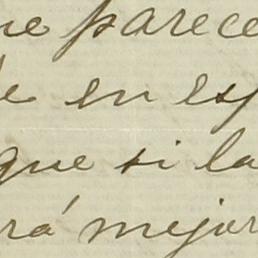 ne parece
e en esp
que si la
rá mejor